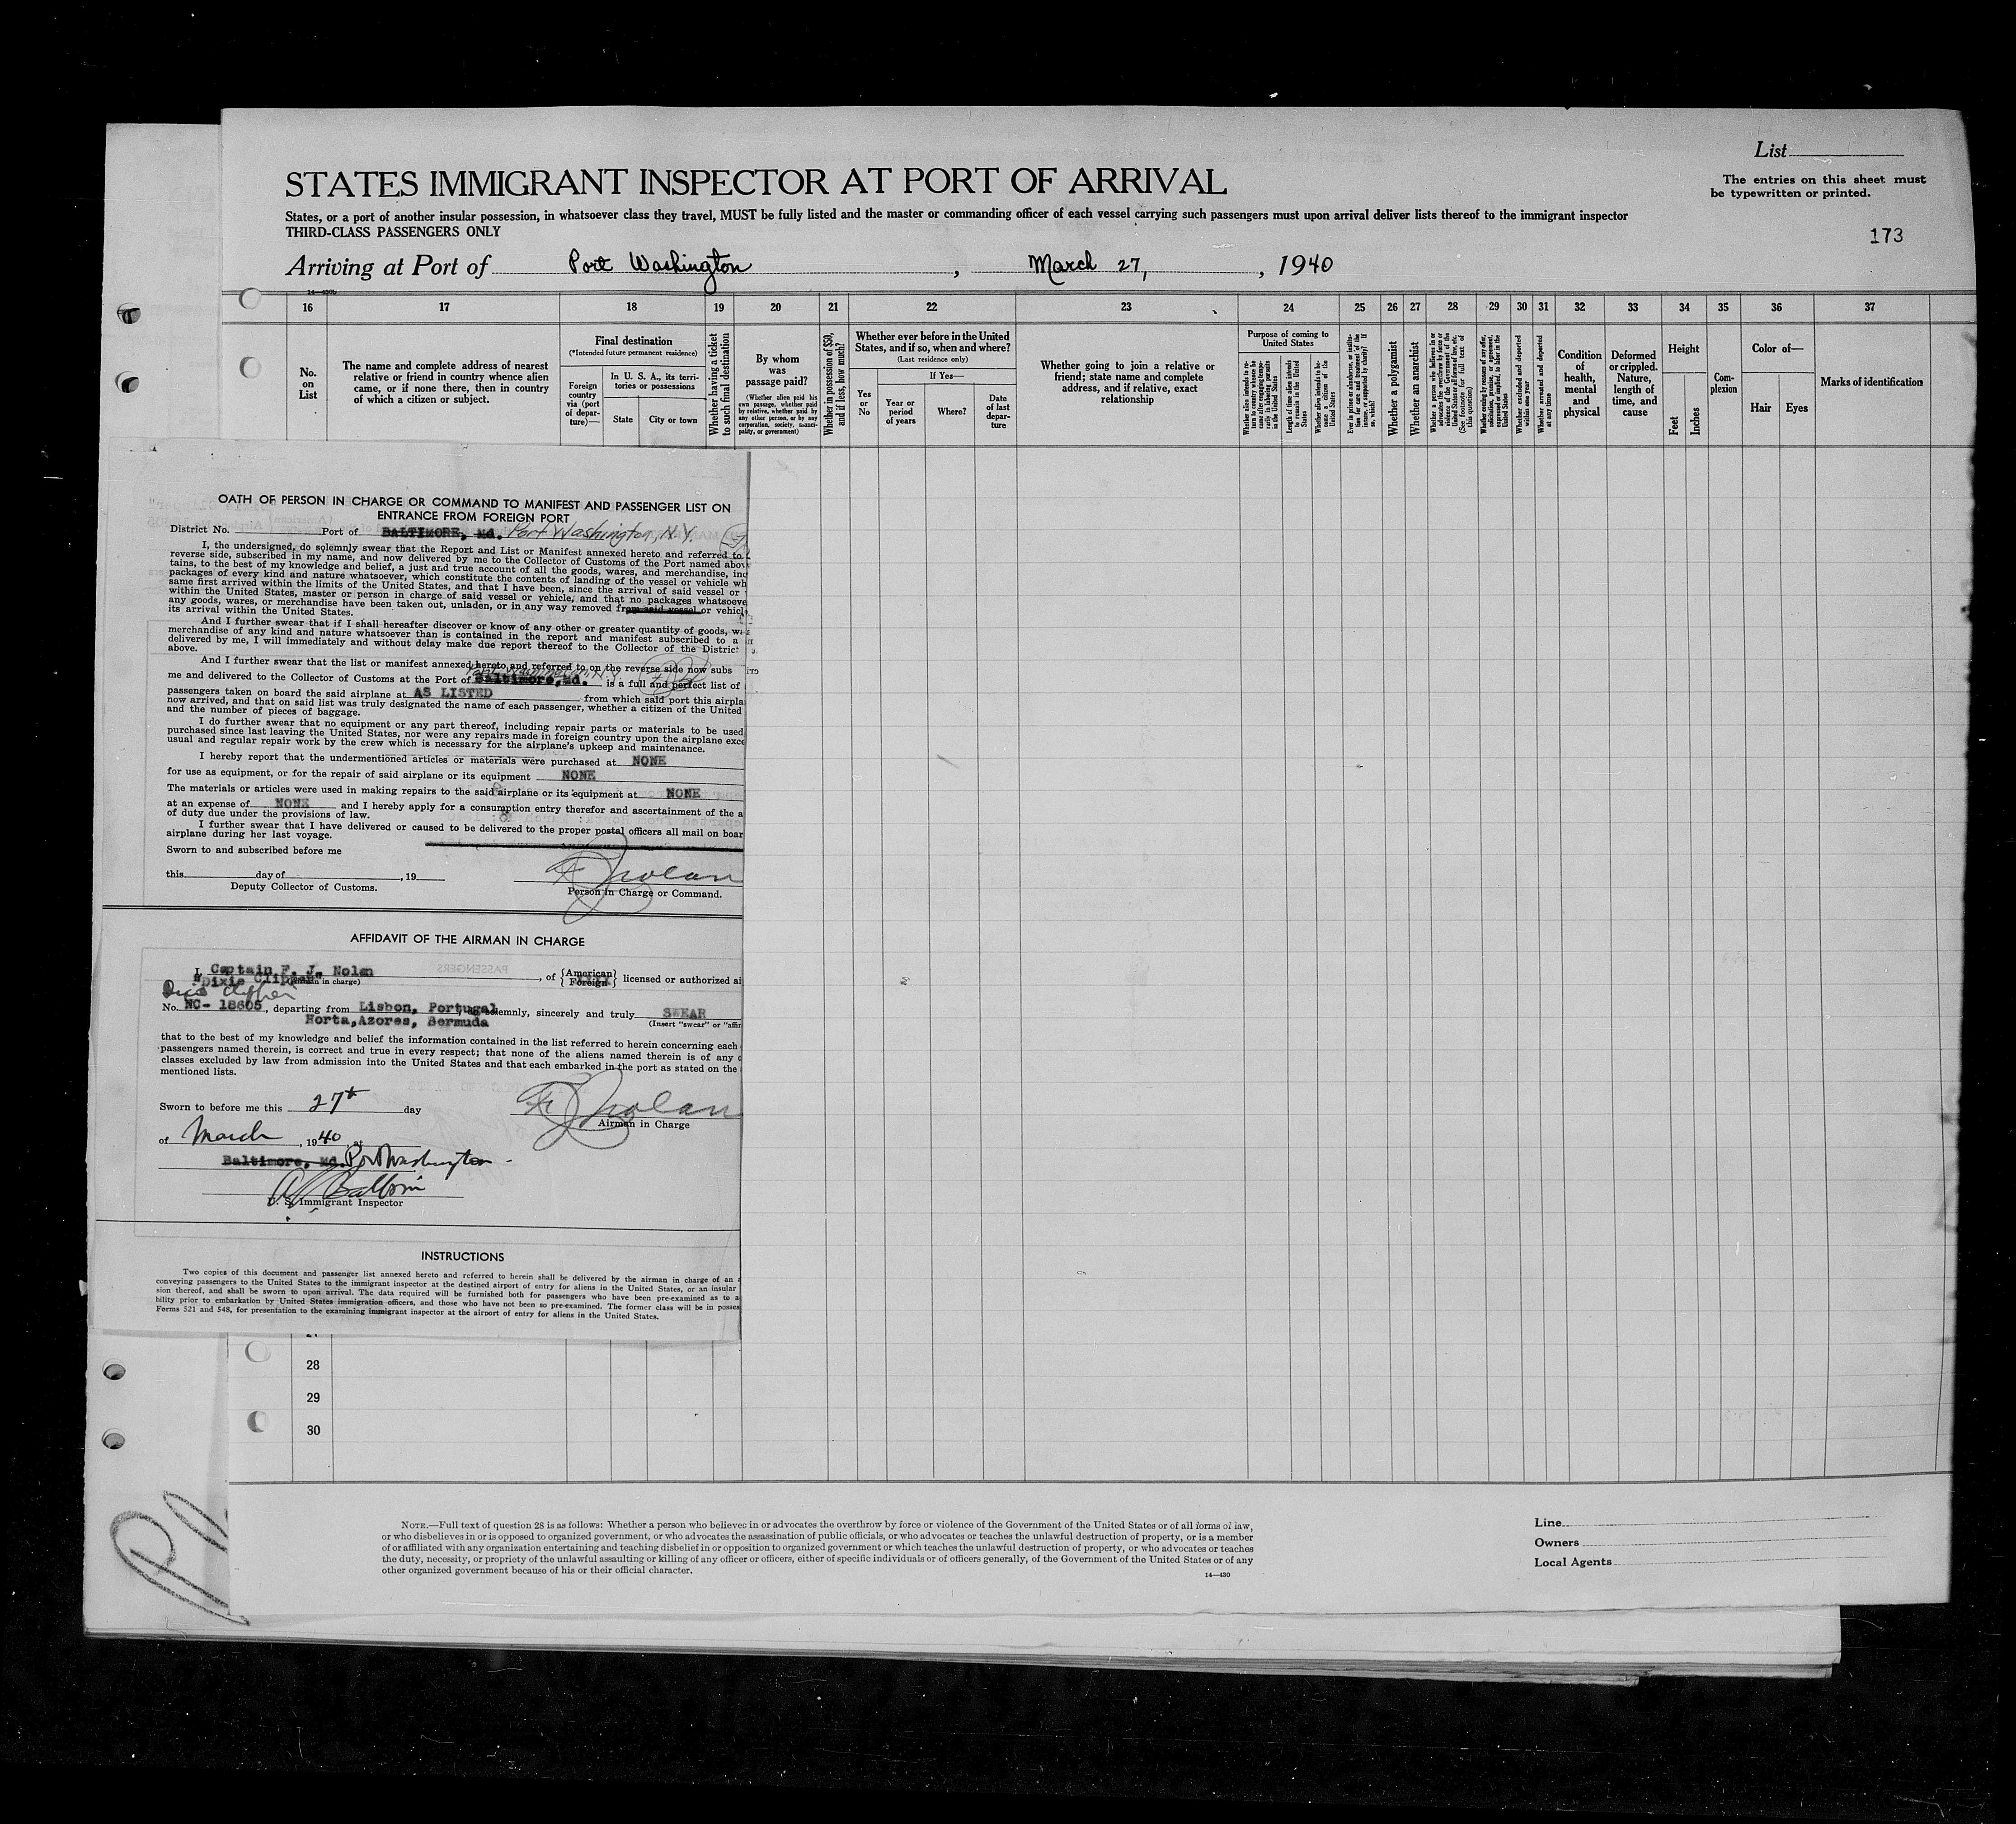 List
STATES IMMIGRANT INSPECTOR AT PORT OF ARRIVAL
The entries on this sheet must
be typewritten or printed.
States, or a port of another insular possession, in whatsoever class they travel, MUST be fully listed and the master or commanding officer of each vessel carrying such passengers must upon arrival deliver lists thereof to the immigrant inspector
THIRD-CLASS PASSENGERS ONLY
173
Arriving at Port of Port Washington, March 27, 1940
16 17 18 19 20 21 22 23 24 25 26 27 28 29 30 31 32 33 34 35 36 37
No.
on
List
The name and complete address of nearest
relative or friend in country whence alien
came, or if none there, then in country
of which a citizen or subject.
Final destination
(*Intended future permanent residence)
Foreign
country
via (port
of depar-
ture)—
In U. S. A., its terri-
tories or possessions
State
City or town
Whether having a ticket
to such final destination
By whom
was
passage paid?
(Whether alien paid his
own passage, whether paid
by relative, whether paid by
any other person, or by any
corporation, society, munici-
pality, or government)
Whether in possession of $50,
and if less, how much?
Whether ever before in the United
States, and if so, when and where?
(Last residence only)
Yes
or
No
If Yes—
Year or
period
of years
Where?
Date
of last
depar-
ture
Whether going to join a relative or
friend; state name and complete
address, and if relative, exact
relationship
Purpose of coming to
United States
Whether alien intends to re-
turn to country whence he
came after engaging tempo-
rarily in laboring pursuits
in the United States
Length of time alien intends
to remain in the United
States
Whether alien intends to be-
come a citizen of the
United States
Whether a polygamist
Whether an anarchist
Whether excluded and deported
within one year
Whether arrested and deported
at any time
Condition
of
health,
mental
and
physical
Deformed
or crippled.
Nature,
length of
time, and
cause
Height
Feet
Inches
Com-
plexion
Color of—
Hair
Eyes
Marks of identification
OATH OF PERSON IN CHARGE OR COMMAND TO MANIFEST AND PASSENGER LIST ON
ENTRANCE FROM FOREIGN PORT
District No. Port of BALTIMORE, Md. Port Washington, N.Y.
I, the undersigned, do solemnly swear that the Report and List or Manifest annexed hereto and referred to
reverse side, subscribed in my name, and now delivered by me to the Collector of Customs of the Port named abov
tains, to the best of my knowledge and belief, a just and true account of all the goods, wares, and merchandise, inc
packages of every kind and nature whatsoever, which constitute the contents of landing of the vessel or vehicle wh
same first arrived within the limits of the United States, and that I have been, since the arrival of said vessel or
within the United States, master or person in charge of said vessel or vehicle, and that no packages whatsoeve
any goods, wares, or merchandise have been taken out, unladen, or in any way removed from said vessel or vehicl
its arrival within the United States.
And I further swear that if I shall hereafter discover or know of any other or greater quantity of goods, wa
merchandise of any kind and nature whatsoever than is contained in the report and manifest subscribed to a
delivered by me, I will immediately and without delay make due report thereof to the Collector of the District
above.
And I further swear that the list or manifest annexed hereto and referred to on the reverse side now subs
Port Washington, N.Y.
me and delivered to the Collector of Customs at the Port of Baltimore, Md. is a full and perfect list of
passengers taken on board the said airplane at AS LISTED from which said port this airpla
now arrived, and that on said list was truly designated the name of each passenger, whether a citizen of the United
and the number of pieces of baggage.
I do further swear that no equipment or any part thereof, including repair parts or materials to be used
purchased since last leaving the United States, nor were any repairs made in foreign country upon the airplane exce
usual and regular repair work by the crew which is necessary for the airplane's upkeep and maintenance.
I hereby report that the undermentioned articles or materials were purchased at NONE
for use as equipment, or for the repair of said airplane or its equipment NONE
The materials or articles were used in making repairs to the said airplane or its equipment at NONE
at an expense of NONE and I hereby apply for a consumption entry therefor and ascertainment of the a
of duty due under the provisions of law.
I further swear that I have delivered or caused to be delivered to the proper postal officers all mail on boar
airplane during her last voyage.
Sworn to and subscribed before me
this day of , 19
F J Nolan
Deputy Collector of Customs.
Person in Charge or Command.
AFFIDAVIT OF THE AIRMAN IN CHARGE
I, Captain F. J. Nolan, of {American Foreign} licensed or authorized ai
"Dixie Clipper" (Airman in charge)
Dixie Clipper
No. NC- 18605, departing from Lisbon, Portugal do solemnly, sincerely and truly SWEAR
Horta, Azores, Bermuda (Insert "swear" or "affir
that to the best of my knowledge and belief the information contained in the list referred to herein concerning each
passengers named therein, is correct and true in every respect; that none of the aliens named therein is of any
classes excluded by law from admission into the United States and that each embarked in the port as stated on the
mentioned lists.
Sworn to before me this 27th day
F J Nolan
Airman in Charge
of March, 1940, at
Baltimore, Md. Port Washington
Baldwin
U. S. Immigrant Inspector
INSTRUCTIONS
Two copies of this document and passenger list annexed hereto and referred to herein shall be delivered by the airman in charge of an a
conveying passengers to the United States to the immigrant inspector at the destined airport of entry for aliens in the United States, or an insular
sion thereof, and shall be sworn to upon arrival. The data required will be furnished both for passengers who have been pre-examined as to a
bility prior to embarkation by United States immigration officers, and those who have not been so pre-examined. The former class will be in posses
Forms 521 and 548, for presentation to the examining immigrant inspector at the airport of entry for aliens in the United States.
28
29
30
NOTE.—Full text of question 28 is as follows: Whether a person who believes in or advocates the overthrow by force or violence of the Government of the United States or of all forms of law,
or who disbelieves in or is opposed to organized government, or who advocates the assassination of public officials, or who advocates or teaches the unlawful destruction of property, or is a member
of or affiliated with any organization entertaining and teaching disbelief in or opposition to organized government or which teaches the unlawful destruction of property, or who advocates or teaches
the duty, necessity, or propriety of the unlawful assaulting or killing of any officer or officers, either of specific individuals or of officers generally, of the Government of the United States or of any
other organized government because of his or their official character.
14—430
Line
Owners
Local Agents